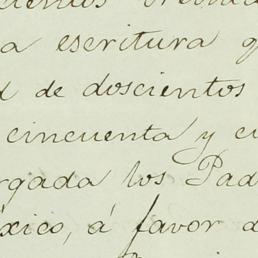 a escritura
d de doscientos
cincuenta y
rgada los Pad
éxico, á favor d